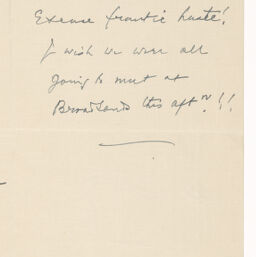 Excuse frantic haste!
I wish we were all
going to meet at
Broadlands this aftn!!